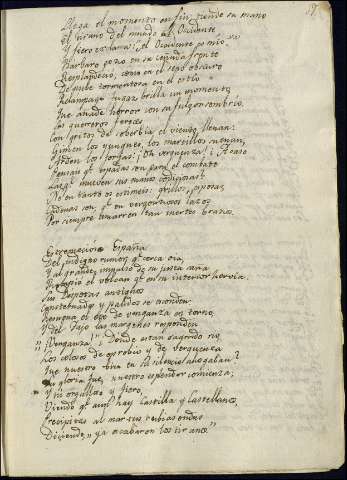 Llega el momento en fin, tiende su mano
El tirano del mundo al Ocidente
Y fiero exclama: el Ocidente es mio.
Barbaro gozo en su ceñuda frente
Resplandecio, como en el seno obscuro
De nube tormentosa en el estio
Relampago fugaz brilla un momento
Que añade horror con su fulgor sombrio.
Sus guerreros feroces
Con gritos de soberbia el viento llenan:
Gimen los yunques, los martillos suenan,
Arden las forjas: ¡Oh verguenza! ¿Acaso
Pensais q.e espadas son para el combate
Las q.e mueven sus manos codiciosas?
No en tanto os estimeis: grillos, esposas,
Cadenas son, q.e en vergonzosos lazos
Por siempre amarren tan inertes brazos.
Estremecióse España
Del indigno rumor q.e cerca oia,
Y al grande impulso de su justa saña
Rompio el volcan q.e en su interior hervia.
Sus Despotas antiguos
Consternados y palidos se esconden:
Resuena el eco de venganza en torno,
Y del Tajo las margenes responden
"¡Venganza!" ¿Donde estan sagrado rio
Los colosos de oprobio y de verguenza
Que nuestro bien en su silencio ahogaban?
Su gloria fue, nuestro esplendor comienza;
Y tu orgulloso y fiero,
Viendo q.e aun hay Castilla y Castellanos,
Precipitas al mar tus rubias ondas
Diciendo, "ya acabaron los tiranos."